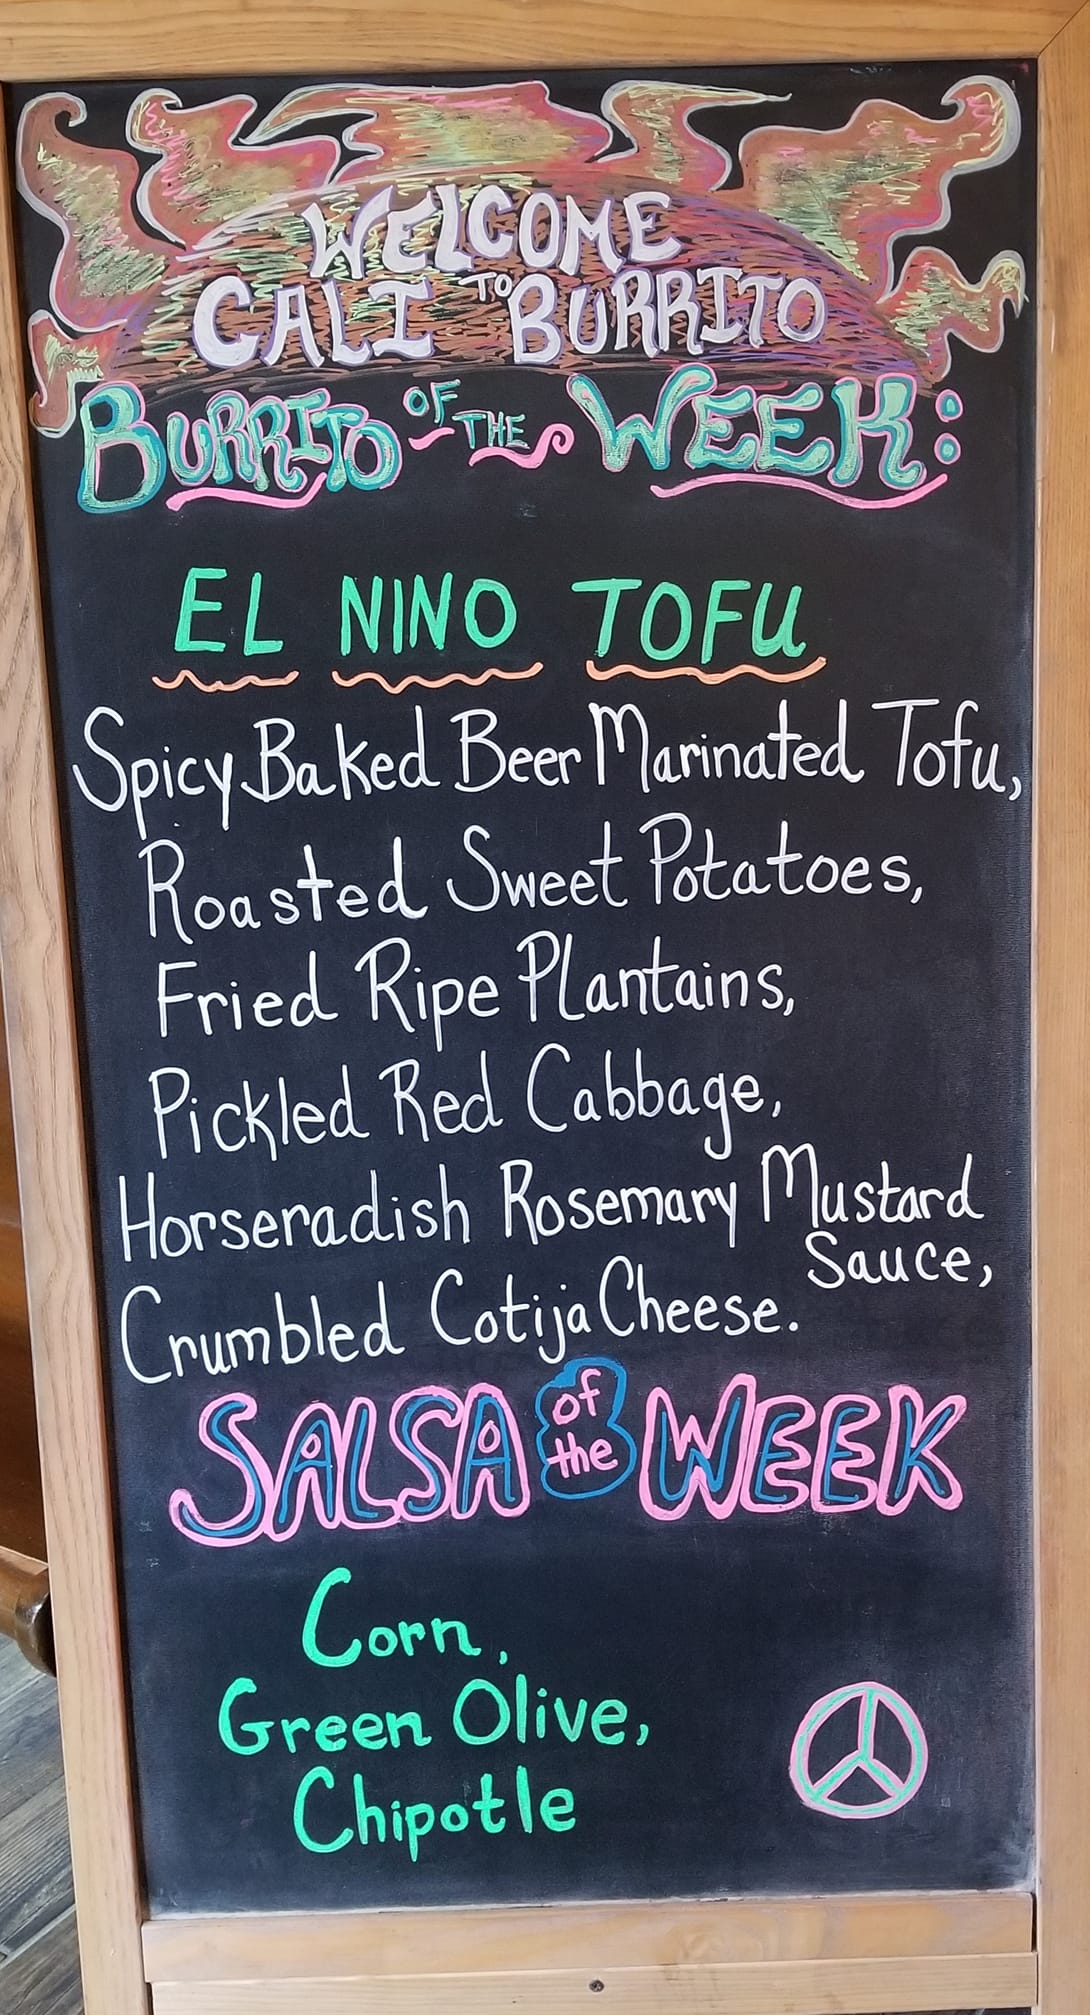 WELCOME
TO
CALI BURRITO
BURRITO OF THE WEEK:
EL NINO TOFU
Spicy Baked Beer Marinated Tofu,
Roasted Sweet Potatoes,
Fried Ripe Plantains,
Pickled Red Cabbage,
Horseradish Rosemary Mustard
Sauce,
Crumbled Cotija Cheese.
SALSA of the WEEK
Corn,
Green Olive,
Chipotle